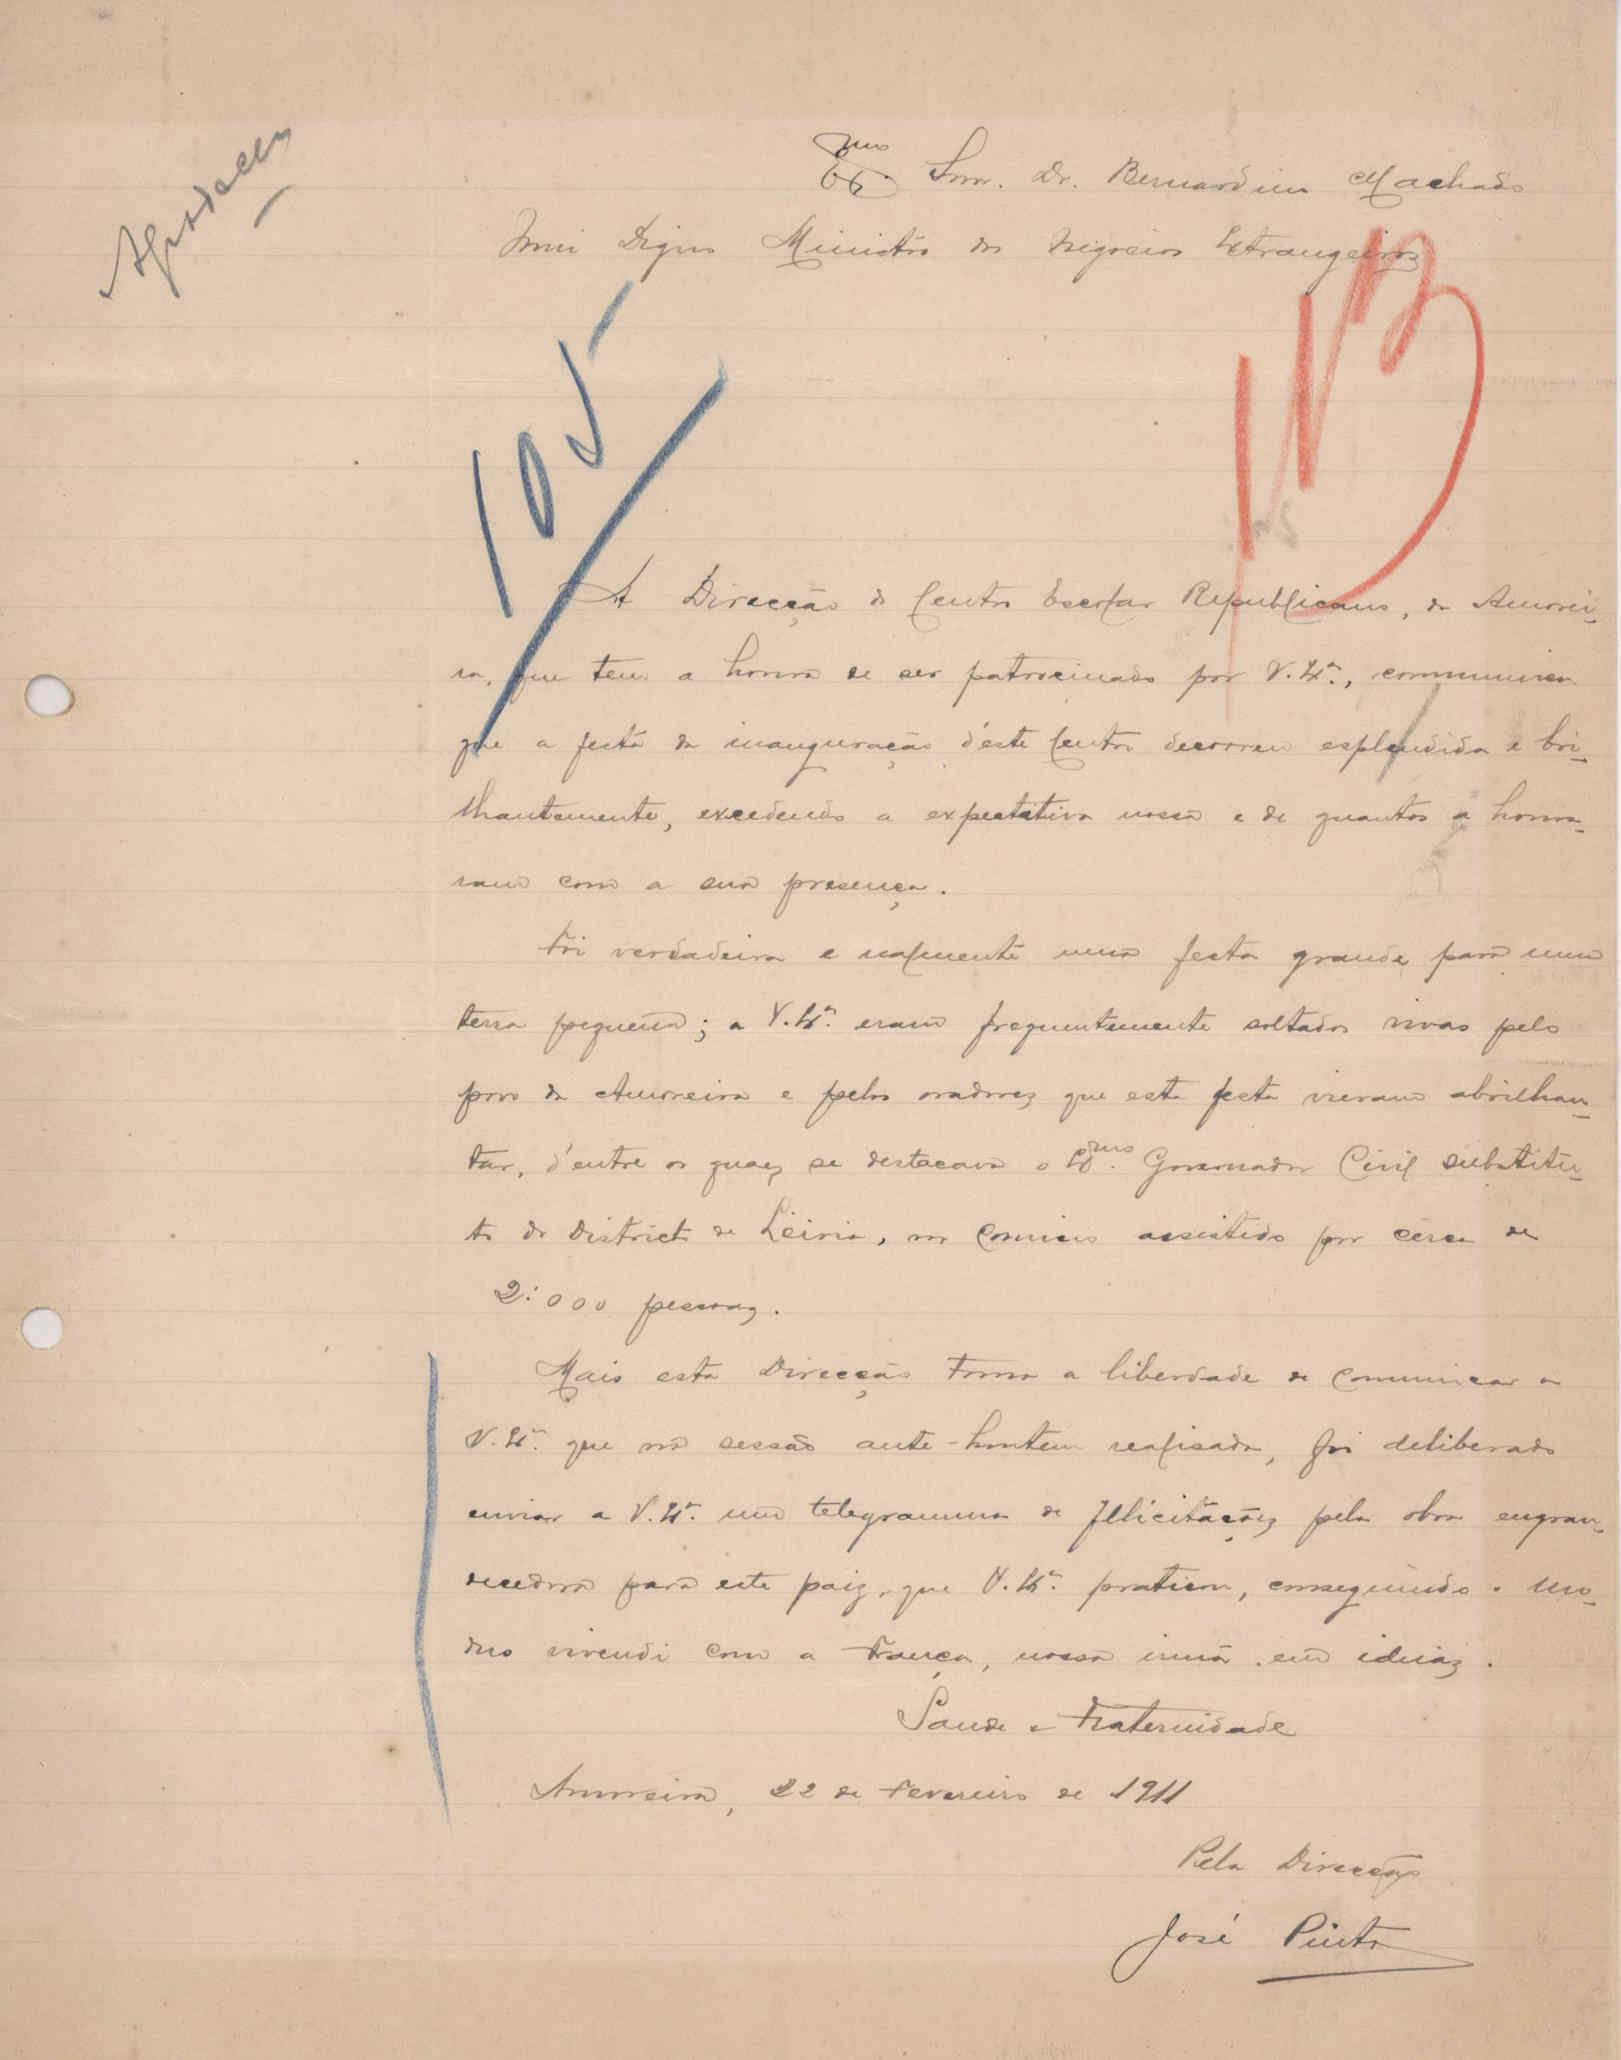 Agradecer
Exmo Snr. Dr. Bernardino Machado
Mui Digno Ministro dos Negocios Extrangeiros
105
A Direcção do Centro Escolar Republicano, da Amorei-
ra, que tem a honra de ser patrocinado por V. Exª., communica
que a festa da inauguração d'este Centro decorreu esplendida e bri-
lhantemente, excedendo a expectativa nossa e de quantos a honra-
ram com a sua presença.
Foi verdadeira e realmente uma festa grande para uma
terra pequena; a V. Exª. eram frequentemente soltados vivas pelo
povo da Amoreira e pelos oradores que esta festa vieram abrilhan-
tar, d'entre os quaes se destacava o Exmo. Governador Civil substitu-
to do Districto de Leiria, no Comicio assistido por cêrca de
2:000 pessoas.
Mais esta Direcção toma a liberdade de comunicar a
V. Exª. que na sessão ante-hontem realisada, foi deliberado
enviar a V. Exª. um telegramma de felicitações pela obra engran-
decedora para este paiz, que V. Exª. praticou, conseguindo o mo-
dus vivendi com a França, nossa irmã em ideias.
Saude e Fraternidade
Amoreira, 22 de Fevereiro de 1911
Pela Direcção
José Pinto